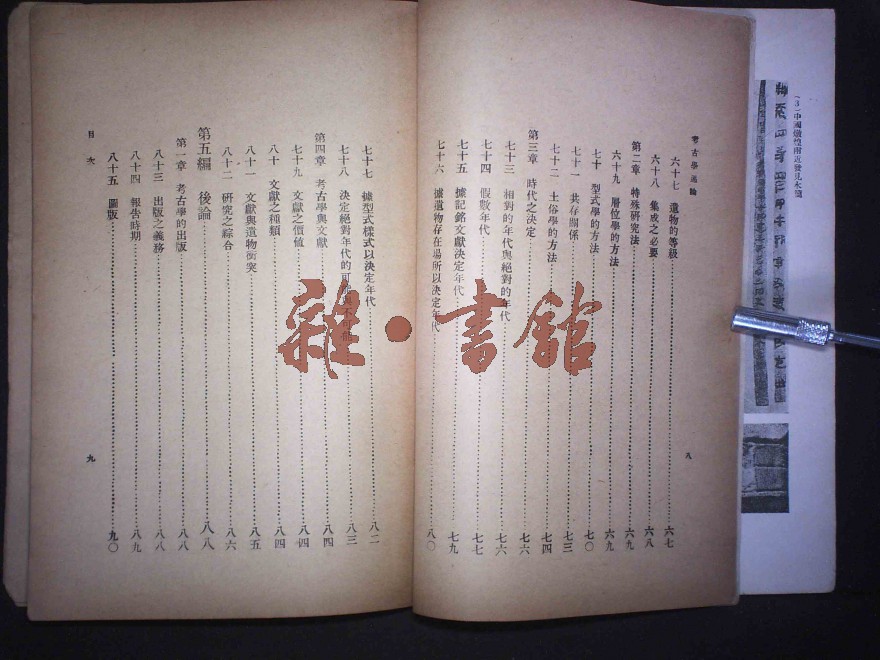 (3)中國燉煌附近發見木簡
考古學通論
六十七　遺物的等級……六七
六十八　集成之必要……六八
第二章　特殊研究法……六九
六十九　層位學的方法……六九
七十　型式學的方法……七〇
七十一　共存關係……七三
七十二　土俗學的方法……七四
第三章　時代之決定……七六
七十三　相對的年代與絕對的年代……七六
七十四　假數年代……七七
七十五　據記銘文獻決定年代……七九
七十六　據遺物存在場所以決定年代……八〇
八
七十七　據型式樣式以決定年代……八二
七十八　決定絕對年代的可能與不可能……八三
第四章　考古學與文獻……八四
七十九　文獻之價値……八四
八十　文獻之種類……八四
八十一　文獻與遺物衝突……八五
八十二　研究之綜合……八六
第五編　後論……八八
第一章　考古學的出版……八八
八十三　出版之義務……八八
八十四　報告時期……八九
八十五　圖版……九〇
目次
九
雜·書館